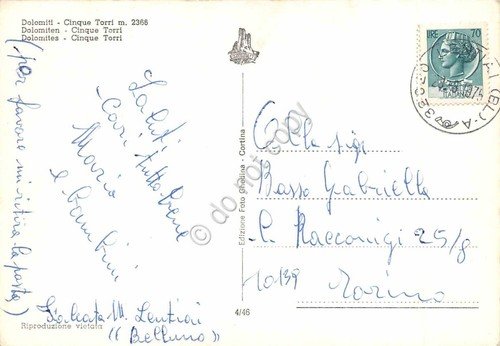 Dolomiti - Cinque Torri m. 2366
Dolomiten - Cinque Torri
Dolomites - Cinque Torri
(per favore mi ritira la posta)
Saluti
tutto bene
Cari
Mario
e bambini
M. Lentiai
(Belluno)
Riproduzione vietata
4/46
Edizione Foto Ghedina - Cortina
LIRE 70
(BL) - A
Alla sig.
Basso Gabriella
Racconigi 25/8
10139
Torino
do not copy